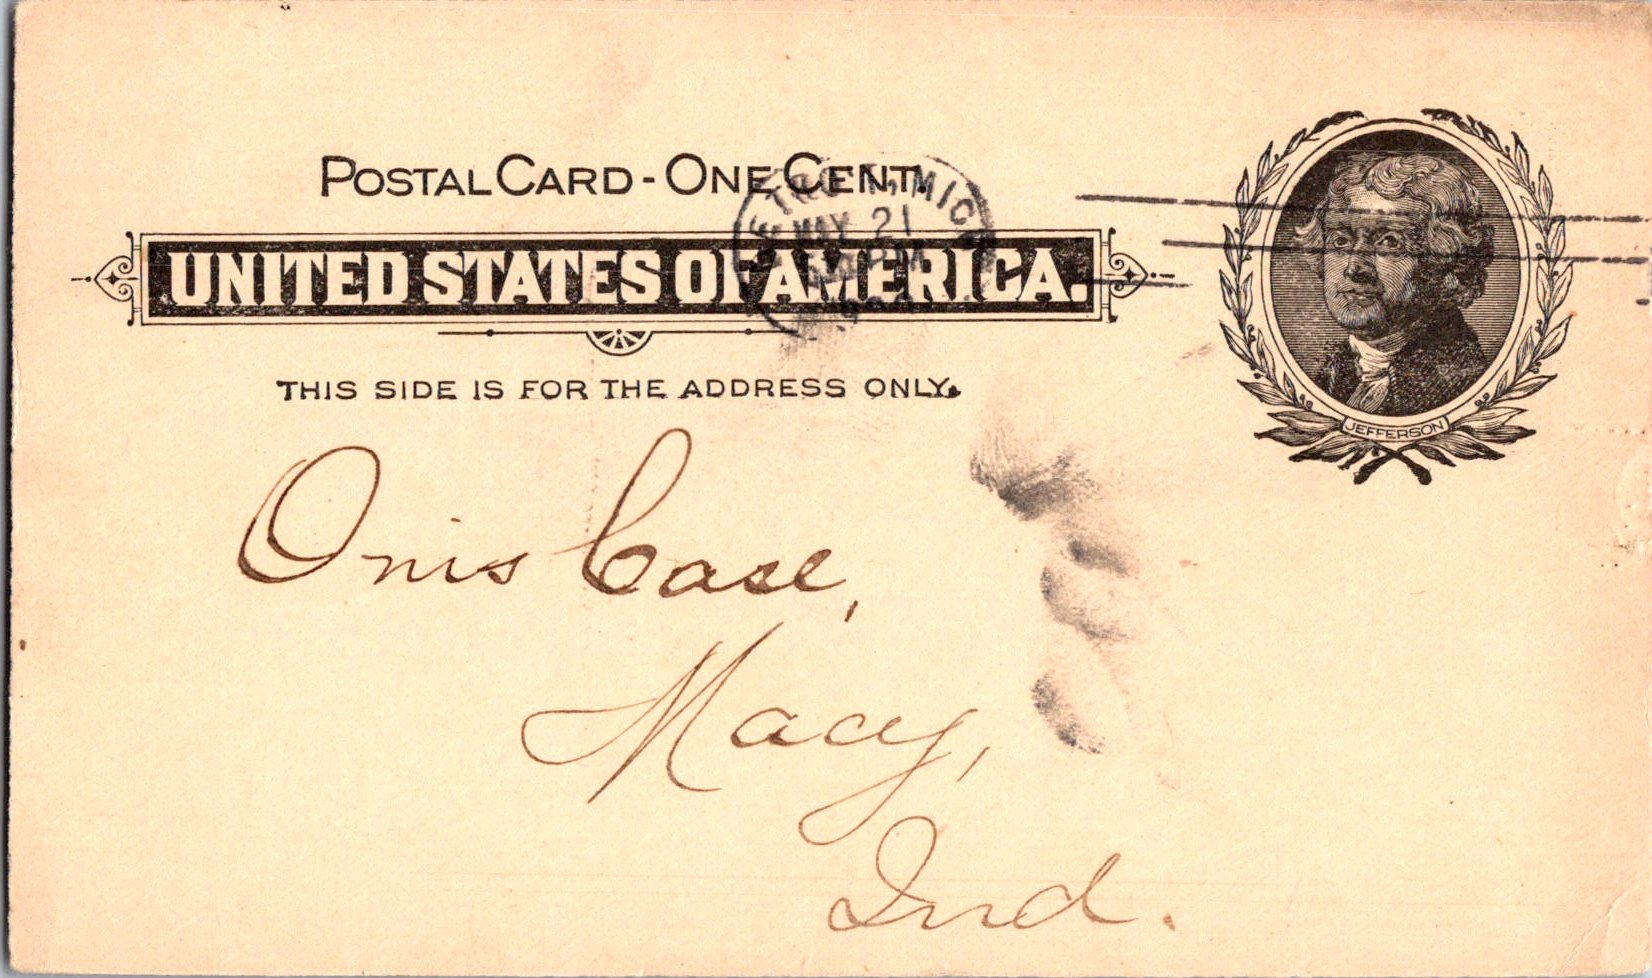 POSTAL CARD - ONE CENT.
DETROIT, MICH
MAY 21
PM
UNITED STATES OF AMERICA.
JEFFERSON
THIS SIDE IS FOR THE ADDRESS ONLY.
Onis Case,
Macy,
Ind.